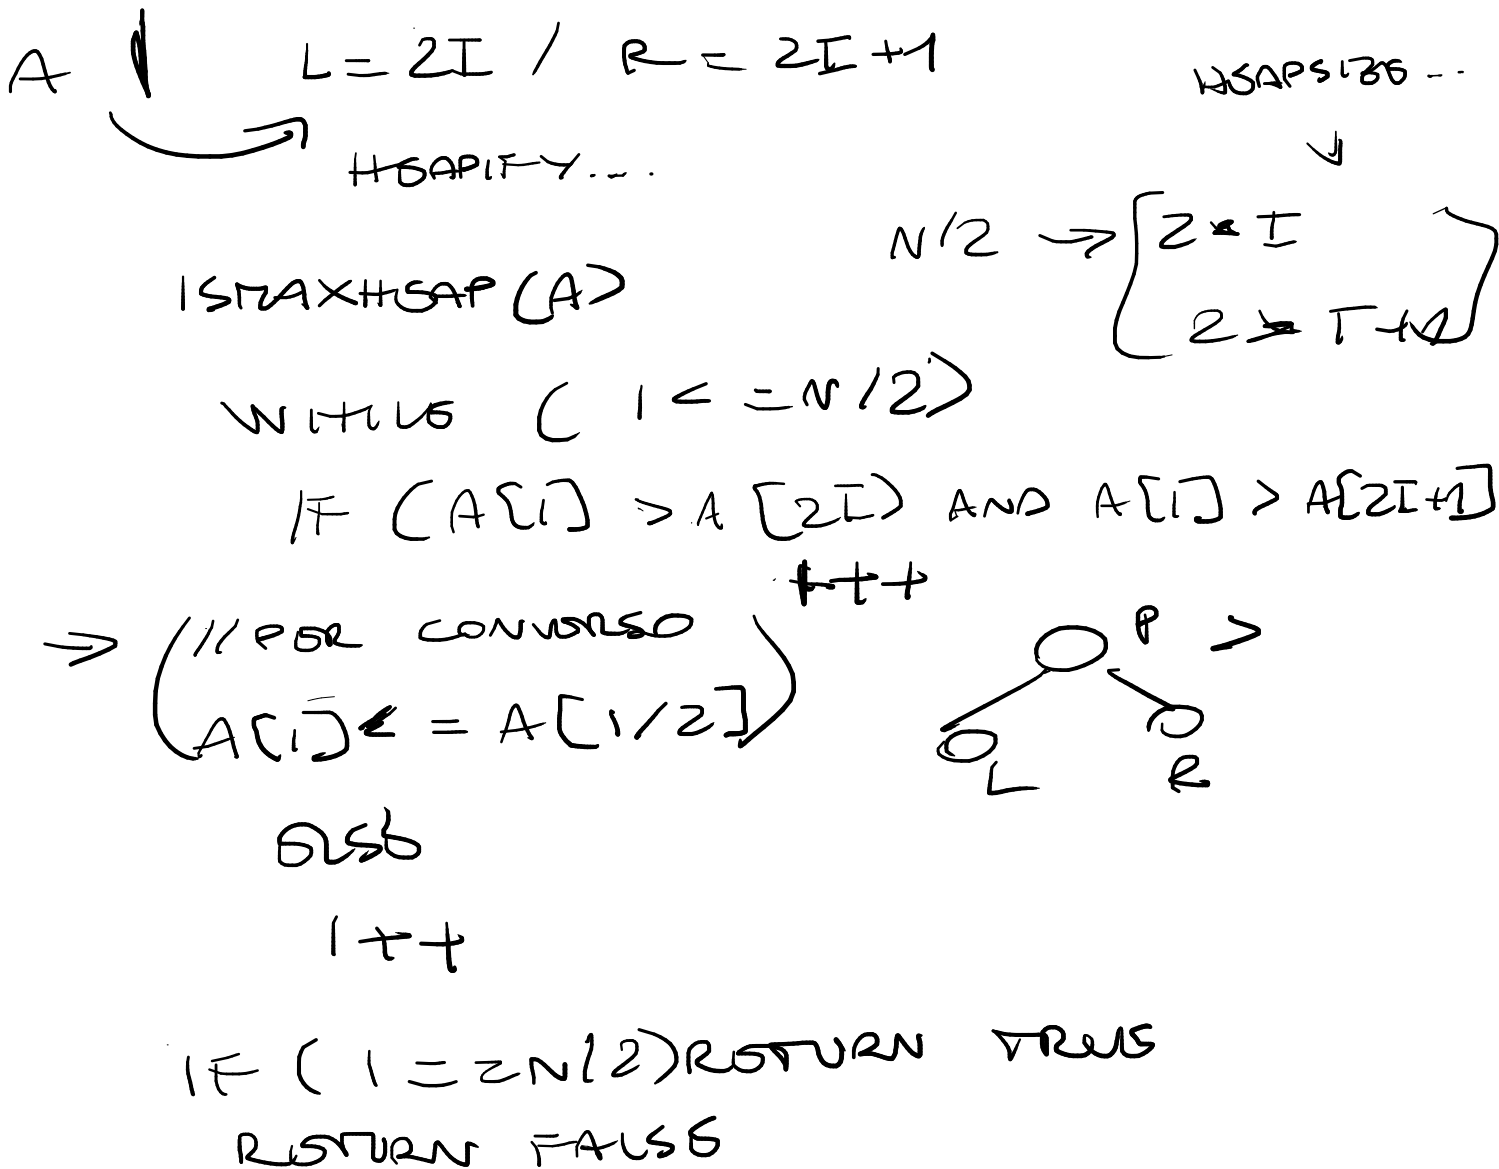 A L = 2I / R = 2I + 1
HEAPSIZE...
HEAPIFY...
N/2 → 2 * I
2 * I + 1
ISMAXHEAP (A)
WHILE ( I <= N/2)
IF (A[I] > A [2I] AND A[I] > A[2I+1]
+++
→ ( // PER CONVERSO
A[I] <= A[I/2] )
P >
L R
ELSE
I++
IF ( I == N/2) RETURN TRUE
RETURN FALSE